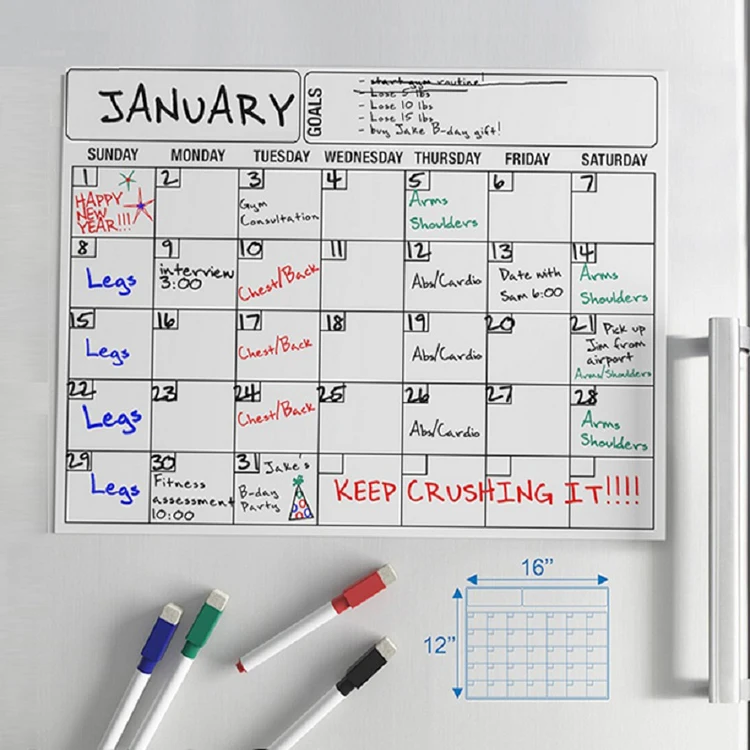 JANUARY
GOALS
- start gym routine!
- Lose 5 lbs
- Lose 10 lbs
- Lose 15 lbs
- buy Jake B-day gift!
SUNDAY MONDAY TUESDAY WEDNESDAY THURSDAY FRIDAY SATURDAY
1 2 3 4 5 6 7
HAPPY
NEW
YEAR!!!
Gym
Consultation
Arms
Shoulders
8 9 10 11 12 13 14
Legs
interview
3:00
Chest/Back
Abs/Cardio
Date with
Sam 6:00
Arms
Shoulders
15 16 17 18 19 20 21
Legs
Chest/Back
Abs/Cardio
Pick up
Jim from
airport
Arms/Shoulders
22 23 24 25 26 27 28
Legs
Chest/Back
Abs/Cardio
Arms
Shoulders
29 30 31
Legs
Fitness
assessment
10:00
Jake's
B-day
Party
KEEP CRUSHING IT!!!!
16”
12”